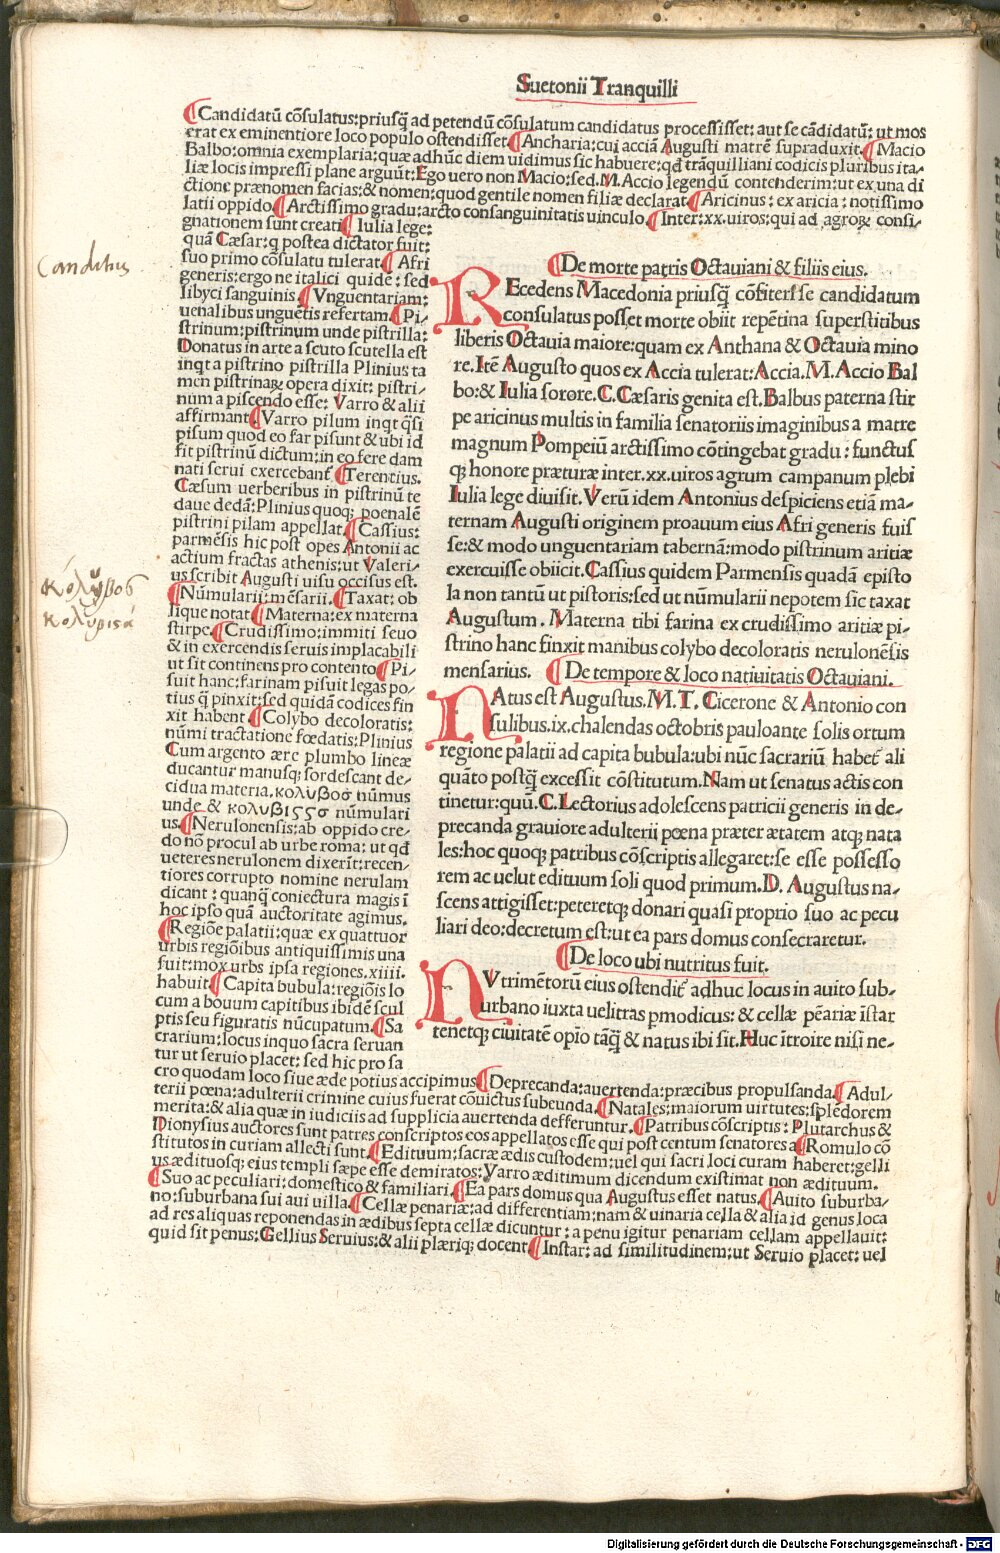 Suetonii Tranquilli
Candidatū cōsulatus:priusq̄ ad petendū cōsulatum candidatus processisset: aut se cādidatū: ut mos
erat ex eminentiore loco populo ostendisset. Ancharia: cui acciā Augusti matrē supraduxit. Macio
Balbo:omnia exemplaria:quæ adhūc diem uidimus sic habuere:qđ trāquilliani codicis pluribus ita-
liæ locis impressi plane arguūt: Ego uero non Macio: sed. M. Accio legendū contenderim: ut ex una di
ctione prænomen facias:& nomen:quod gentile nomen filiæ declarat Aricinus: ex aricia: notissimo
latii oppido. Arctissimo gradu:arcto consanguinitatis uinculo. Inter:xx.uiros:qui ad agroꝝ consi-
gnationem sunt creati Iulia lege:
quā Cæsar:q postea dictator fuit:
suo primo cōsulatu tulerat Afri
generis:ergo ne italici quidē: sed
libyci sanguinis Vnguentariam:
uenalibus unguētis refertam. Pi-
strinum:pistrinum unde pistrilla:
Donatus in arte a scuto scutella est
inqt a pistrino pistrilla Plinius ta
men pistrinaꝝ opera dixit: pistri-
num a piscendo esse: Varro & alii
affirmant Varro pilum inqt q̄si
pisum quod eo far pisunt & ubi id
fit pistrinū dictum:in eo fere dam
nati serui exercebant̄ Terentius.
Cæsum uerberibus in pistrinū te
daue dedā: Plinius quoq; poenalē
pistrini pilam appellat. Cassius:
parmēsis hic post opes Antonii ac
actium fractas athenis:ut Valeri-
us scribit Augusti uisu occisus est.
Nūmularii:mēsarii. Taxat: ob
lique notat Materna:ex materna
stirpe. Crudissimo:immiti seuo
& in exercendis seruis implacabili
ut sit continens pro contento Pi-
suit hanc:farinam pisuit legas po-
tius q̄ pinxit:sed quidā codices fin
xit habent. Colybo decoloratis:
nūmi tractatione fœdatis:Plinius
Cum argento ære plumbo lineæ
ducantur manusq; sordescant de-
cidua materia, κολυβοσ nūmus
unde & κολυβισσσ nūmulari
us. Nerulonensis:ab oppido cre-
do nō procul ab urbe roma: ut qđ
ueteres nerulonem dixerīt:recen-
tiores corrupto nomine nerulam
dicant: quanq̄ coniectura magis ī
hoc ipso quā auctoritate agimus.
Regiōe palatii:quæ ex quattuor
urbis regiōibus antiquissimis una
fuit:mox urbs ipsa regiones.xiiii.
habuit Capita bubula:regiōis lo
cum a bouum capitibus ibidē scul
ptis seu figuratis nūcupatum. Sa
crarium:locus in quo sacra seruan
tur ut seruio placet: sed hic pro sa
cro quodam loco siue æde potius accipimus Deprecanda:auertenda:præcibus propulsanda. Adul-
terii pœna:adulterii crimine cuius fuerat cōuictus subeunda. Natales:maiorum uirtutes:splēdorem
merita:& alia quæ in iudiciis ad supplicia auertenda defferuntur. Patribus cōscriptis: Plutarchus &
Dionysius auctores sunt patres conscriptos eos appellatos esse qui post centum senatores a Romulo cō
stitutos in curiam allecti sunt. Edituum:sacræ ædis custodem:uel qui sacri loci curam haberet:gelli
us ædituosq; eius templi sæpe esse demiratos: Varro æditimum dicendum existimat non ædituum.
Suo ac peculiari:domestico & familiari. Ea pars domus qua Augustus esset natus. Auito suburba-
no:suburbana sui aui uilla. Cellæ penariæ:ad differentiam:nam & uinaria cella & alia id genus loca
ad res aliquas reponendas in ædibus septa cellæ dicuntur: a penu igitur penariam cellam appellauit:
quid sit penus:Gellius Seruius:& alii plæriq; docent Instar: ad similitudinem:ut Seruio placet: uel
De morte patris Octauiani & filiis eius.
REcedens Macedonia priusq̄ cōfiterise candidatum
consulatus posset morte obiit repētina superstitibus
liberis Octauia maiore:quam ex Anthana & Octauia mino
re. Itē Augusto quos ex Accia tulerat: Accia. M. Accio Bal
bo:& Iulia sorore. C. Cæsaris genita est. Balbus paterna stir
pe aricinus multis in familia senatoriis imaginibus a matre
magnum Pompeiū arctissimo cōtingebat gradu: functus
q; honore præturæ inter.xx.uiros agrum campanum plebi
Iulia lege diuisit. Verū idem Antonius despiciens etiā ma-
ternam Augusti originem proauum eius Afri generis fuis
se:& modo unguentariam tabernā:modo pistrinum aritiæ
exercuisse obiicit. Cassius quidem Parmensis quadā episto
la non tantū ut pistoris:sed ut nūmularii nepotem sic taxat
Augustum. Materna tibi farina ex crudissimo aritiæ pi-
strino hanc finxit manibus colybo decoloratis nerulonēsis
mensarius. De tempore & loco natiuitatis Octauiani.
NAtus est Augustus. M. T. Cicerone & Antonio con
sulibus.ix.chalendas octobris pauloante solis ortum
regione palatii ad capita bubula:ubi nūc sacrariū habet̄ ali
quāto postq̄ excessit cōstitutum. Nam ut senatus actis con
tinetur:quū. C. Lectorius adolescens patricii generis in de-
precanda grauiore adulterii pœna præter ætatem atq; nata
les:hoc quoq; patribus cōscriptis allegaret:se esse possesso
rem ac uelut edituum soli quod primum. D. Augustus na-
scens attigisset:peteretq; donari quasi proprio suo ac pecu
liari deo:decretum est:ut ea pars domus consecraretur.
De loco ubi nutritus fuit.
NVtrimētorū eius ostendit̄ adhuc locus in auito sub-
urbano iuxta uelitras pmodicus: & cellæ pēariæ īstar
tenetq; ciuitatē opīo tāq̄ & natus ibi sit. Huc ītroire nisi ne-
Canditus
κόλυβος
Digitalisierung gefördert durch die Deutsche Forschungsgemeinschaft - DFG